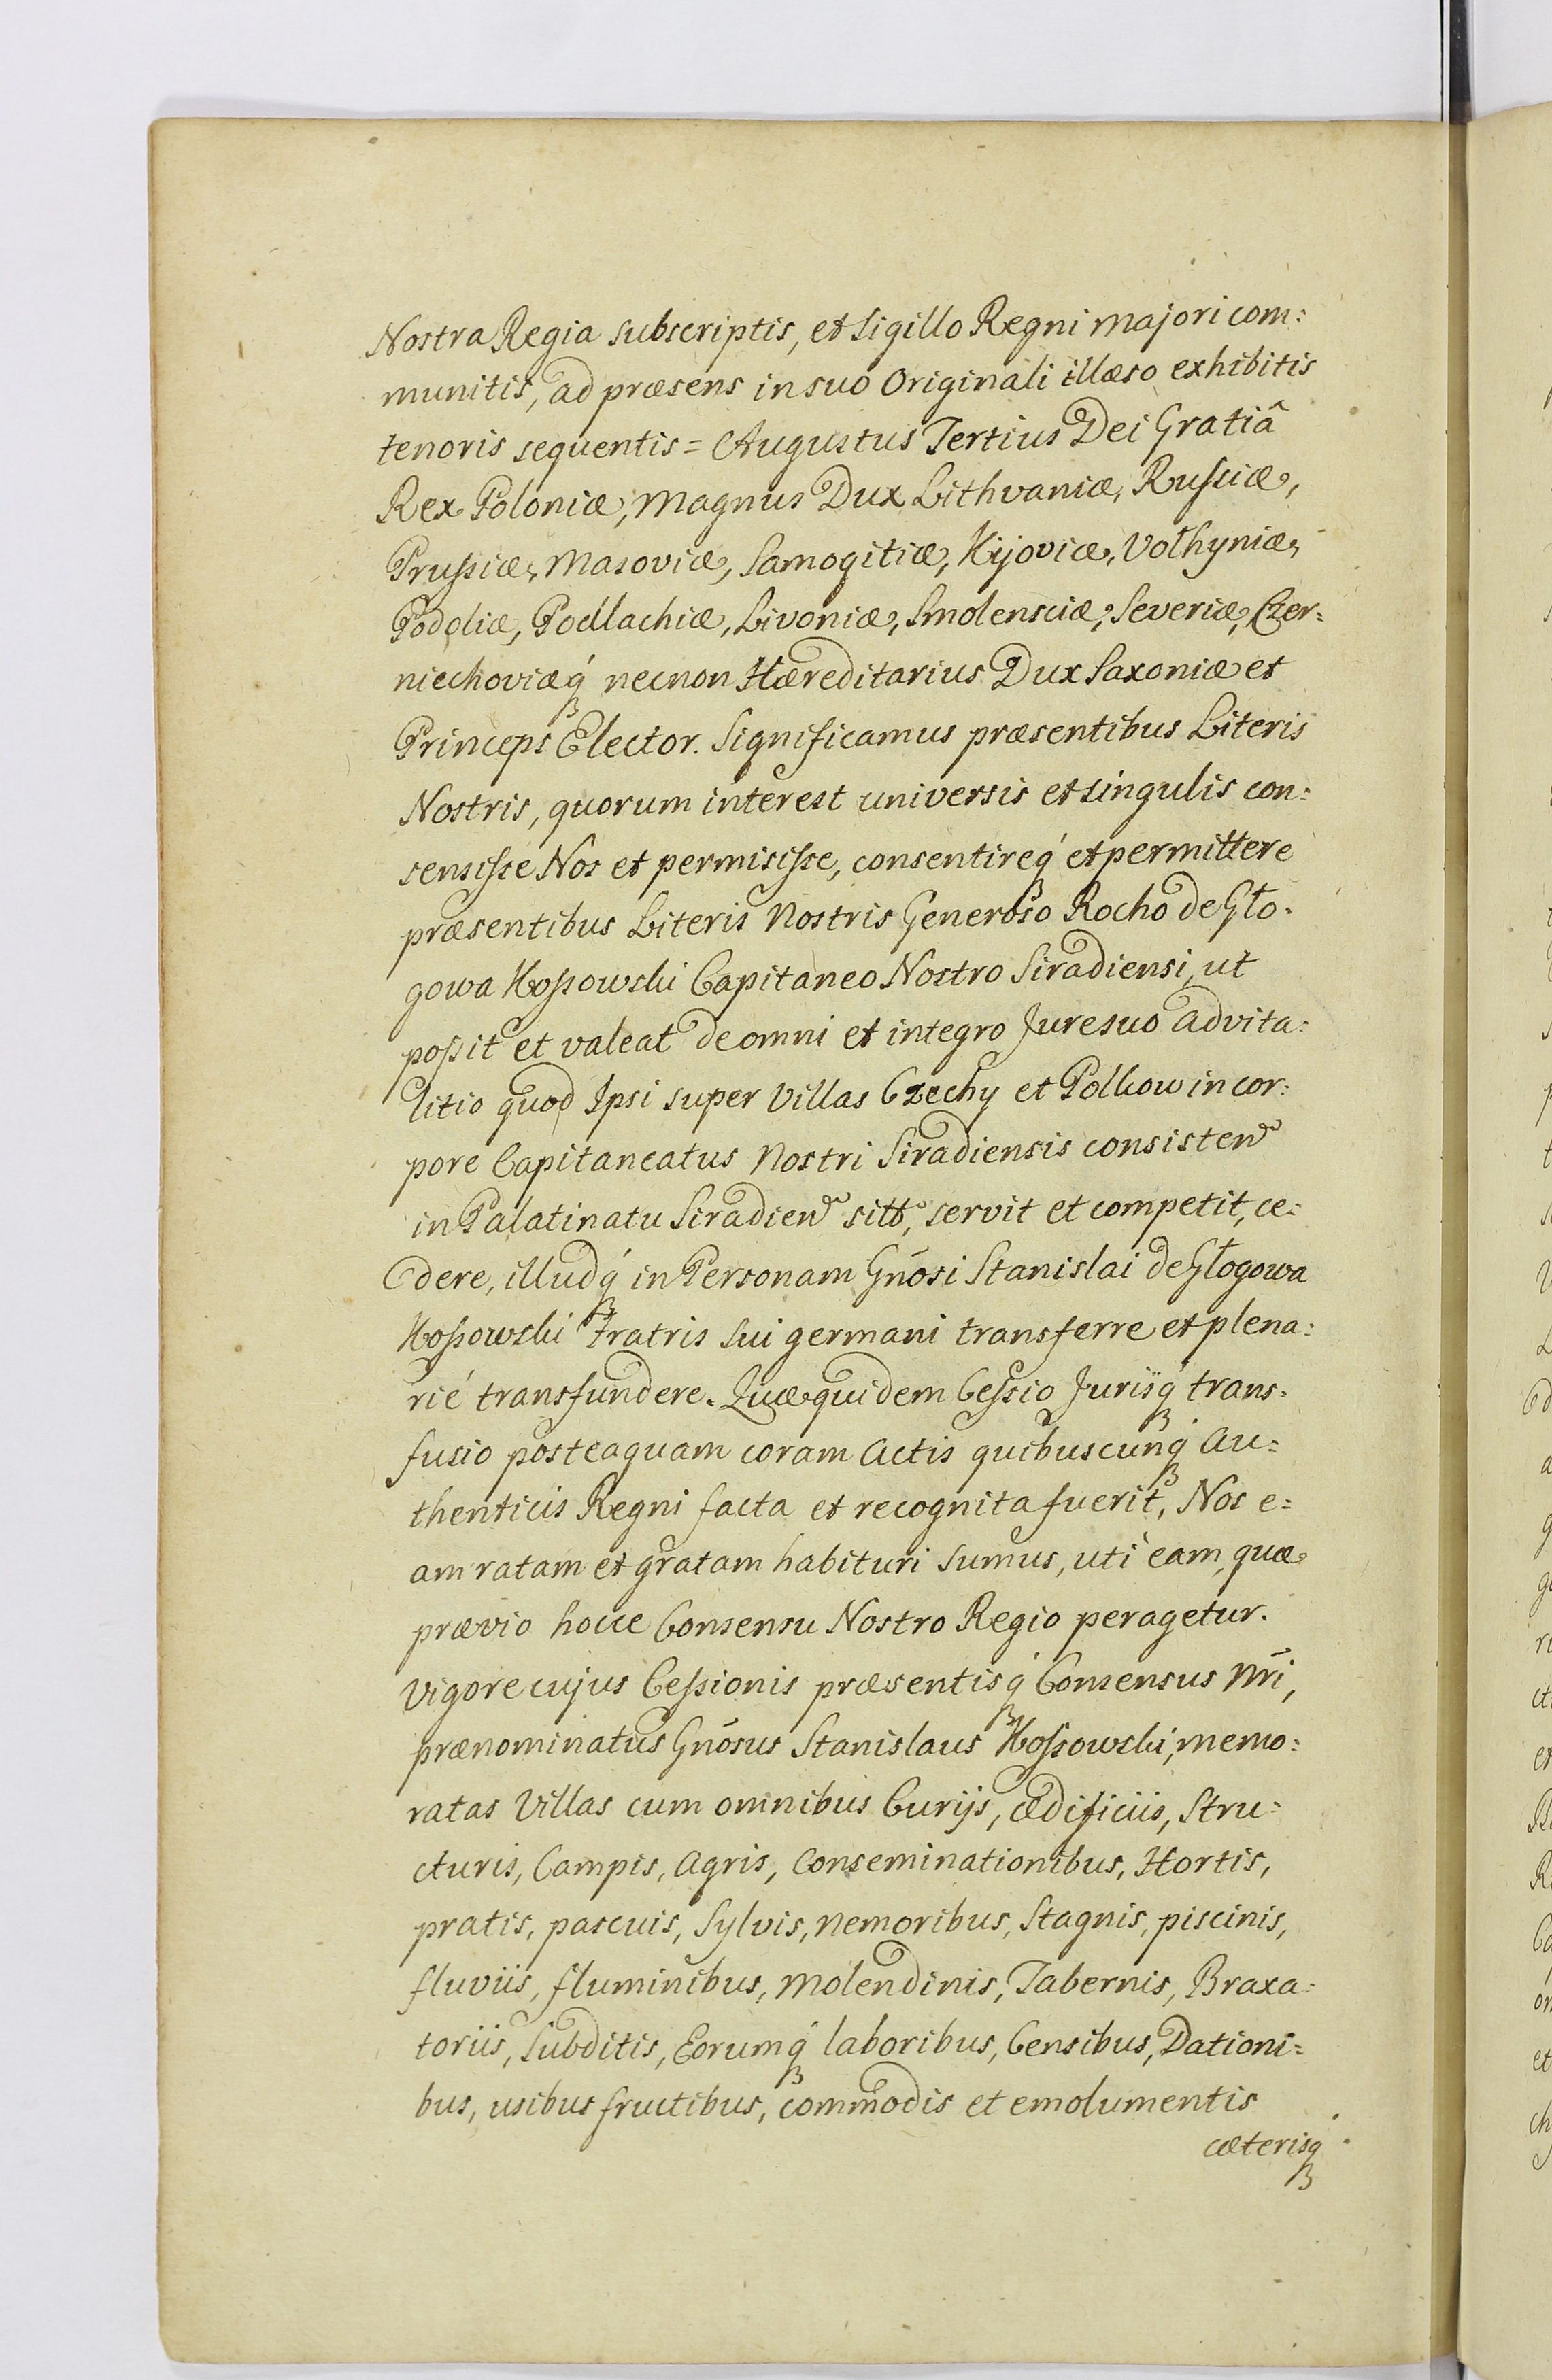 Nostra Regia subscriptis, et Sigillo Regni majori com:
munitis, ad præsens in suo Originali illæso exhibitis
tenoris sequentis = Augustus Tertius Dei Gratiâ
Rex Poloniæ, Magnus Dux Lithvaniæ, Russiæ,
Prussiæ, Masoviæ, Samogitiæ, Kijoviæ, Volhyniæ,
Podoliæ, Podlachiæ, Livoniæ, Smolensciæ, Severiæ, Czer:
niechoviæq́ꝫ necnon Hæreditarius Dux Saxoniæ et
Princeps Elector. Significamus præsentibus Literis
Nostris, quorum interest universis et singulis con:
sensisse Nos et permisisse, consentireq́ꝫ et permittere
præsentibus Literis Nostris Generoso Rocho de Gło:
gowa Kossowski Capitaneo Nostro Siradiensi, ut
possit et valeat de omni et integro Jure suo advita:
litio quod Ipsi super Villas Czechy et Polkow in cor:
pore Capitaneatus Nostri Siradiensis consisten̄
in Palatinatu Siradien̄ sitt, servit et competit, ce:
dere, illudq́ꝫ in Personam Gnōsi Stanislai de Głogowa
Kossowski Fratris sui germani transferre et plena:
rié transfundere. Quæ quidem Cessio Jurisq́ꝫ trans:
fusio posteaquam coram Actis quibuscunq́ꝫ Au:
thenticis Regni facta et recognita fuerit, Nos e:
am ratam et gratam habituri sumus, uti eam, quæ
prævio hocce Consensu Nostro Regio peragetur.
Vigore cujus Cessionis præsentisq́ꝫ Consensus Nrī,
prænominatus Gnōsus Stanislaus Kossowski, memo:
ratas Villas cum omnibus Curijs, ædificiis, Stru:
cturis, Campis, Agris, Conseminationibus, Hortis,
pratis, pascuis, Sylvis, nemoribus, Stagnis, piscinis,
fluviis, fluminibus, Molendinis, Tabernis, Braxa:
toriis, Subditis, Eorumq́ꝫ laboribus, Censibus, Dationi:
bus, usibus fructibus, commodis et emolumentis
cæterisqꝫ